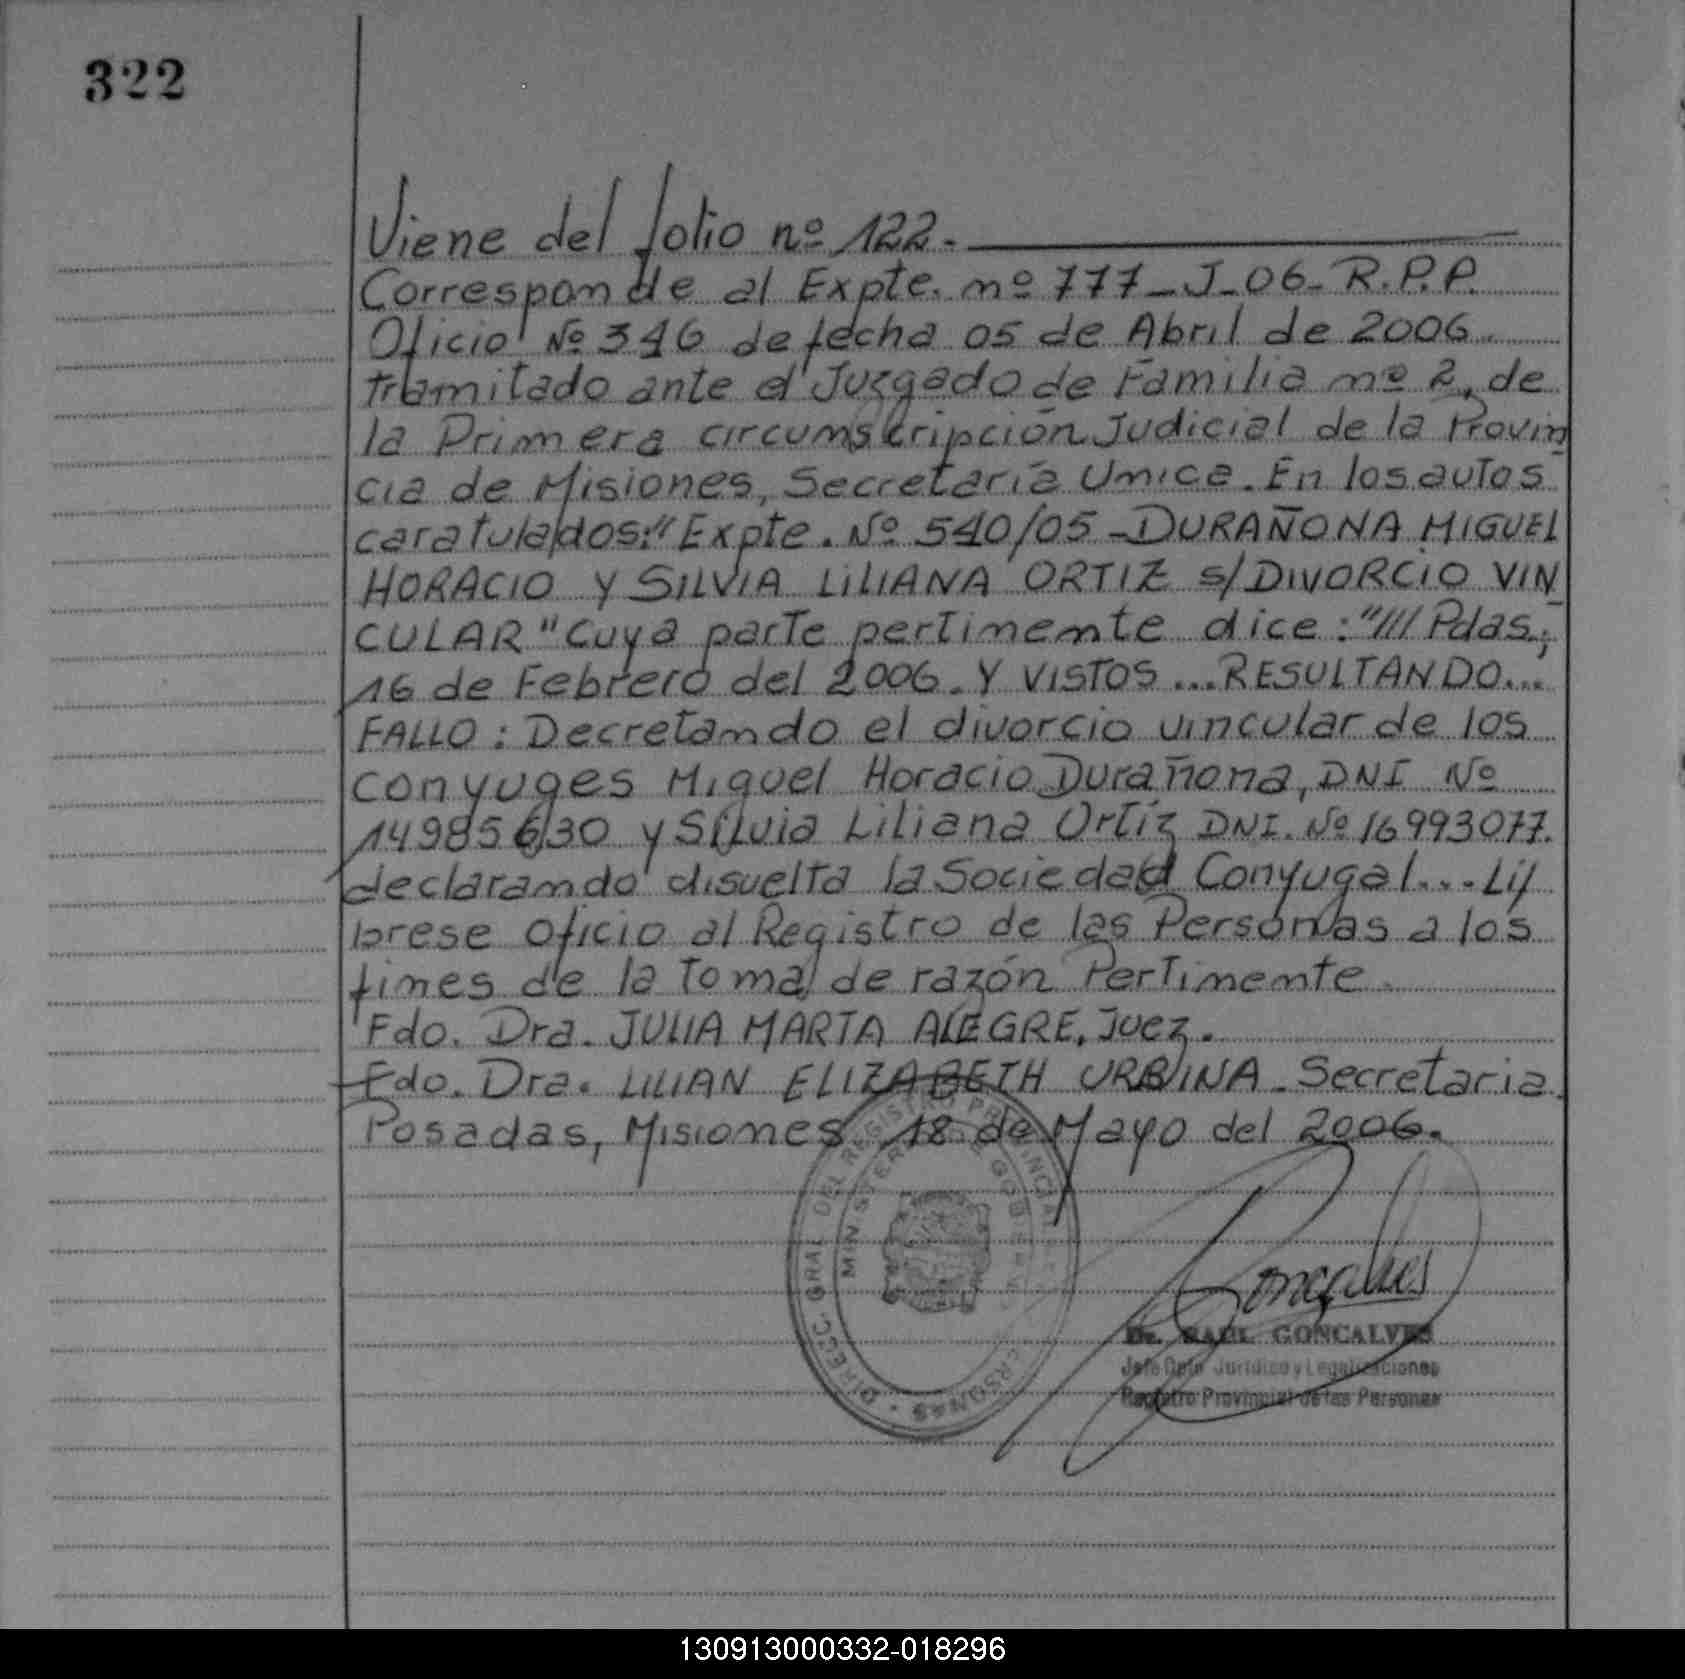 322
Viene del folio nº 122.
Corresponde al Expte. nº 777-J-06-R.P.P.
Oficio Nº 346 de fecha 05 de Abril de 2006.
tramitado ante el Juzgado de Familia nº 2, de
la Primera circumscripción Judicial de la Provin
cia de Misiones, Secretaría Unica. En los autos
caratulados: "Expte. Nº 540/05 - DURAÑONA MIGUEL
HORACIO Y SILVIA LILIANA ORTIZ s/ DIVORCIO VIN
CULAR" Cuya parte pertinente dice: "/// Pdas;
16 de Febrero del 2006. Y VISTOS ... RESULTANDO...
FALLO: Decretando el divorcio vincular de los
conyuges Miguel Horacio Durañona, DNI Nº
14985630 y Silvia Liliana Ortíz DNI. Nº 16993077.
declarando disuelta la Sociedad Conyugal... Lí
brese Oficio al Registro de las Personas a los
fines de la toma de razón Pertinente.
Fdo. Dra. JULIA MARTA ALEGRE, Juez.
Fdo. Dra. LILIAN ELIZABETH URBINA. Secretaria.
Posadas, Misiones, 18 de Mayo del 2006.
DIRECC. GRAL. DEL REGISTRO PROVINCIAL PERSONAS
MINISTERIO DE GOBIERNO
Goncalves
Dr. RAUL GONCALVES
Jefe Dpto Jurídico y Legalizaciones
Registro Provincial de las Personas
130913000332-018296